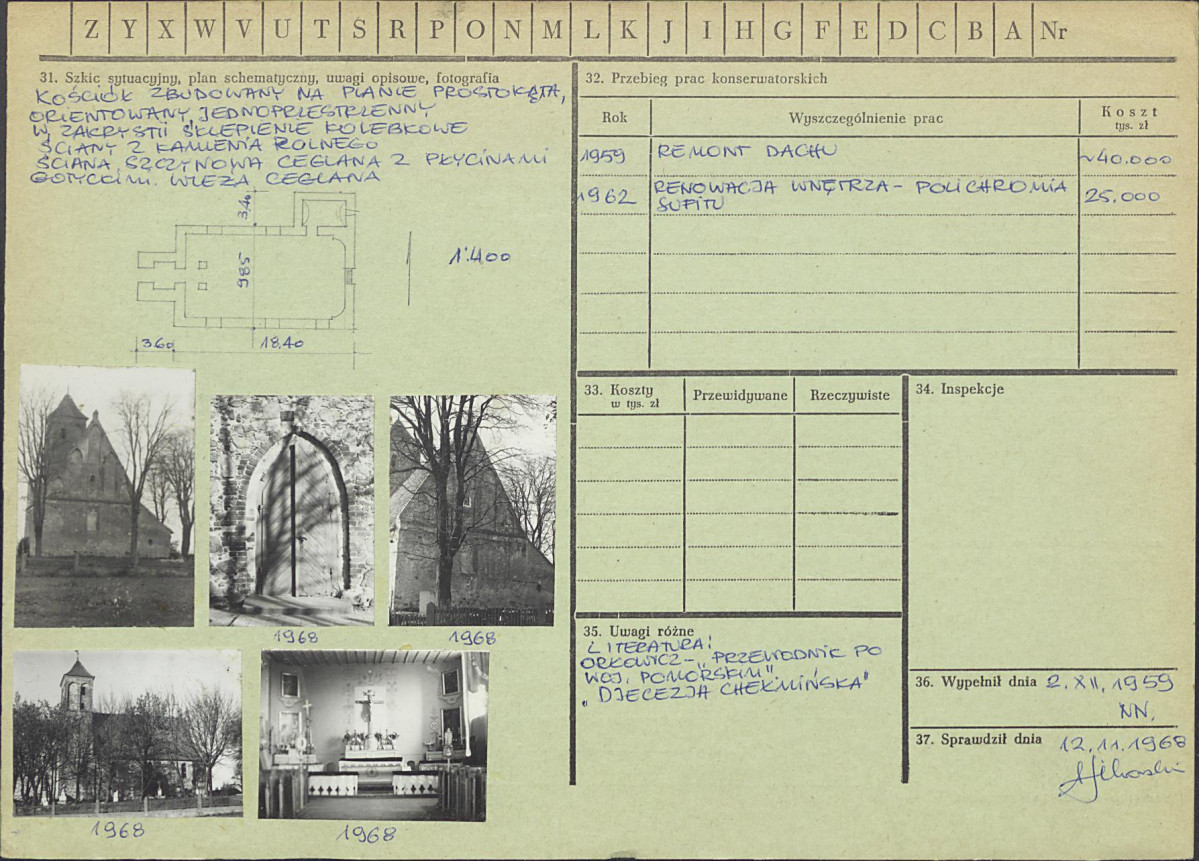 Z Y X W V U T S R P O N M L K J I H G F E D C B A Nr
31. Szkic sytuacyjny, plan schematyczny, uwagi opisowe, fotografia
KOŚCIÓŁ ZBUDOWANY NA PLANIE PROSTOKĄTA,
ORIENTOWANY, JEDNOPRZESTRZENNY
W ZAKRYSTII SKLEPIENIE KOLEBKOWE
ŚCIANY Z KAMIENIA ROLNEGO
ŚCIANA SZCZYNOWA CEGLANA Z PŁYCINAMI
GOTYCKIMI. WIEŻA CEGLANA
3,40
985
1:400
360
18.40
1968
1968
1968
1968
32. Przebieg prac konserwatorskich
Rok Wyszczególnienie prac Koszt
tys. zł
1959 REMONT DACHU ~40.000
1962 RENOWACJA WNĘTRZA - POLICHROMIA
SUFITU 25.000
33. Koszty
w tys. zł Przewidywane Rzeczywiste
34. Inspekcje
35. Uwagi różne
LITERATURA:
ORŁOWICZ - "PRZEWODNIK PO
WOJ. POMORSKIM"
"DJECEZJA CHEŁMIŃSKA"
36. Wypełnił dnia 2.XII.1959
NN.
37. Sprawdził dnia 12.11.1968